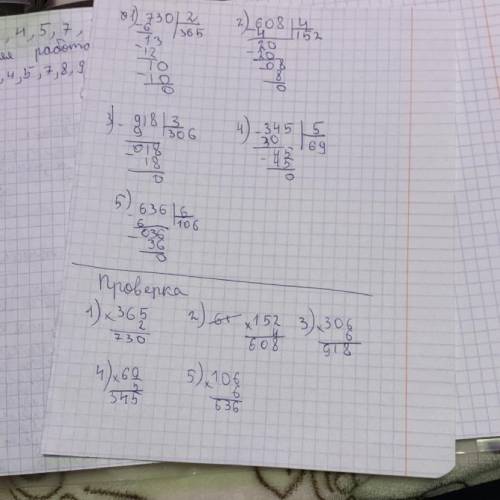 , 4, 5, 7,
работа
, 4, 5, 7, 8, 9
1) 730 | 2
- 6 | 365
13
- 12
10
- 10
0
2) 608 | 4
- 4 | 152
20
- 20
08
8
0
3) - 918 | 3
9 | 306
018
- 18
0
4) - 345 | 5
30 | 69
- 45
45
0
5) - 636 | 6
6 | 106
036
- 36
0
Проверка
1) × 365
2
730
2) × 152
4
608
3) × 306
6
918
4) × 69
5
345
5) × 106
6
636